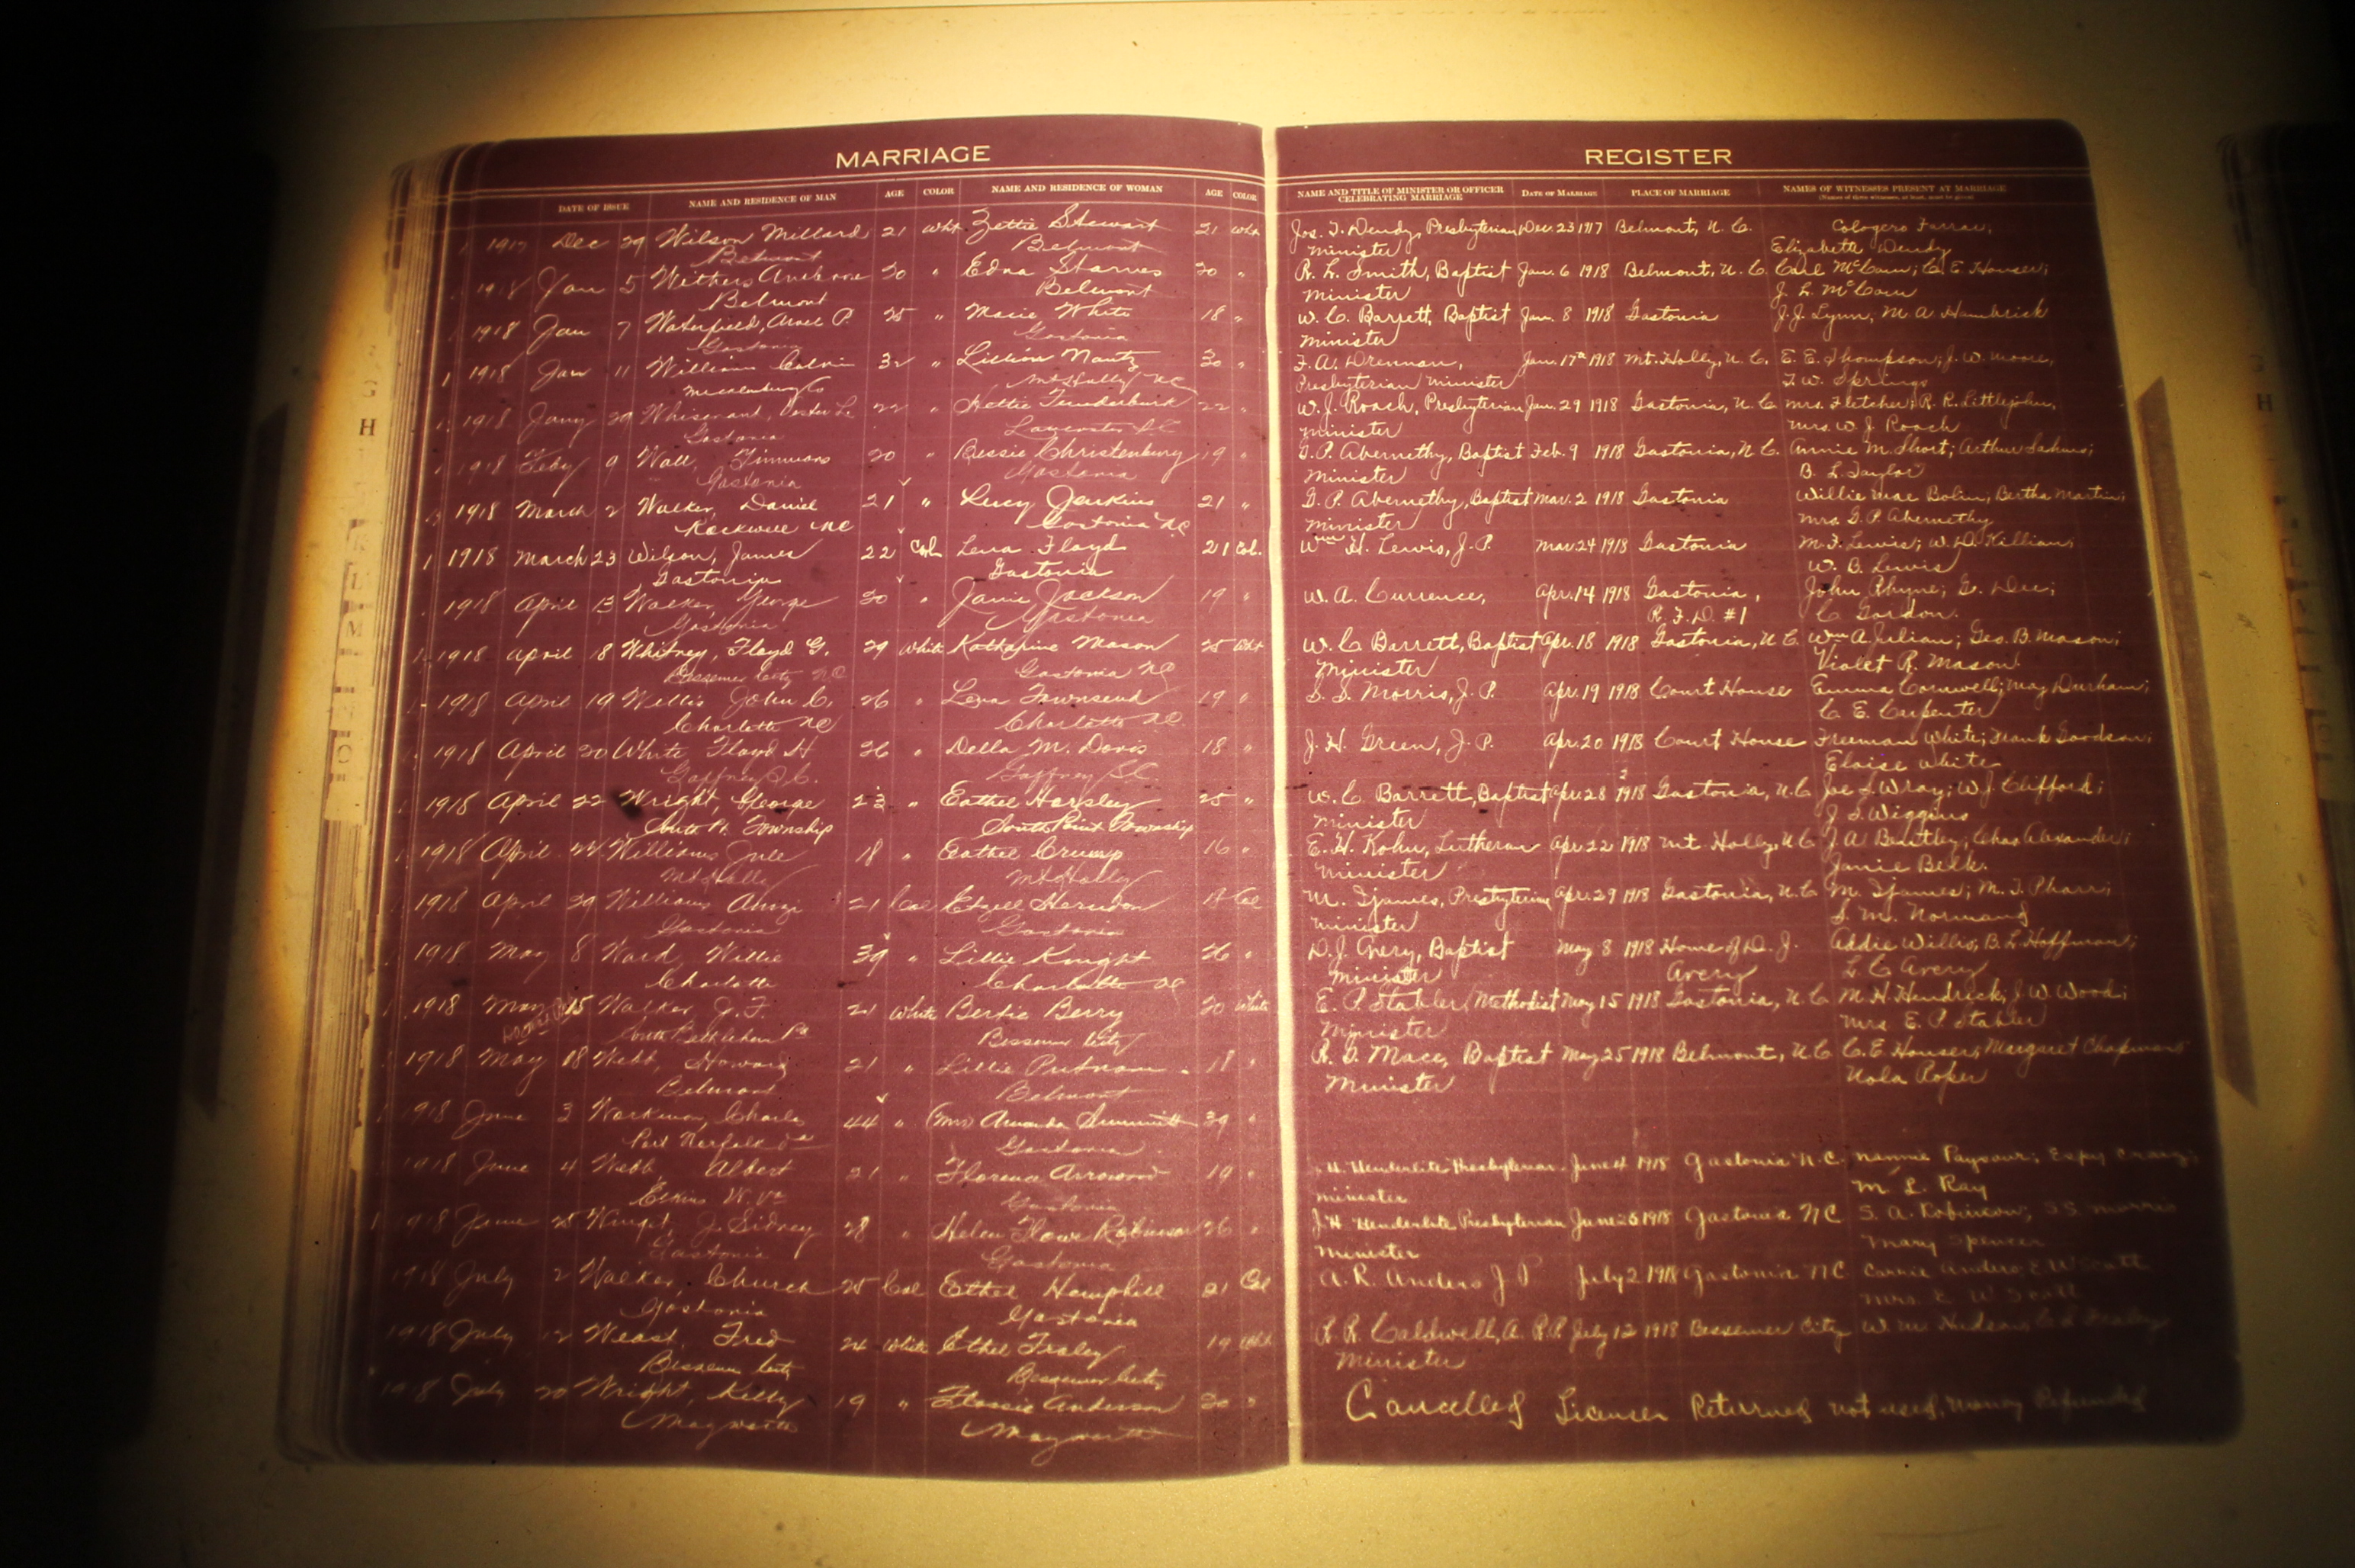 MARRIAGE
DATE OF ISSUE NAME AND RESIDENCE OF MAN AGE COLOR NAME AND RESIDENCE OF WOMAN AGE COLOR
1917 Dec 29 Wilson Millard 21 Wht Zettie Stewart 21 Wht
Belmont Belmont
1918 Jan 5 Withers 20 " Edna Starnes 20 "
Belmont Belmont
1918 Jan 7 Waterfield, P. 25 " Macie White 18 "
Gastonia Gastonia
1918 Jan 11 Williams Calvin 32 " Lillian Nantz 30 "
Mecklenburg Co Mt Holly NC
1918 Jany 29 Whisenant, L. 22 " Hettie Funderburk 22 "
Gastonia Lancaster S.C.
1918 Feby 9 Wall, Timmons 20 " Bessie Christenbury 19 "
Gastonia Gastonia
1918 March 2 Walker, Daniel 21 " Lucy Jenkins 21 "
Rockwell NC Gastonia NC
1918 March 23 Wilson, James 22 Col Lena Floyd 21 Col.
Gastonia Gastonia
1918 April 13 Walker, George 30 " Janie Jackson 19 "
Gastonia Gastonia
1918 April 18 Whitney, Floyd G. 29 White Katharine Mason 25 Wht
Bessemer City NC Gastonia NC
1918 April 19 Willis John C. 26 " Lena Townsend 19 "
Charlotte NC Charlotte NC
1918 April 20 White Floyd H 26 " Della M. Davis 18 "
Gaffney S.C. Gaffney S.C.
1918 April 22 Wright, George 23 " Eathel Harpsley 25 "
South Pt. Township South Point Township
1918 April 22 Williams Jule 18 " Eathel Crump 16 "
Mt Holly Mt Holly
1918 April 29 Williams 21 Col Herndon 18 Col
Gastonia Gastonia
1918 May 8 Ward, Willie 39 " Lillie Knight 26 "
Charlotte Charlotte NC
1918 May 15 Walker J. F. 21 White Bertie Berry 20 White
South Bethlehem Pa Bessemer City
1918 May 18 Webb, Howard 21 " Lillie Putnam 18 "
Belmont Belmont
1918 June 3 Workman, Charles 44 " (Mrs) Amanda Summitt 39 "
Port Norfolk Va Gastonia
1918 June 4 Webb, Albert 21 " Florence Arrowood 19 "
Elkins W. Va Gastonia
1918 June 25 Winget, J. Sidney 28 " Helen Flowe Robinson 26 "
Gastonia Gastonia
1918 July 2 Walker, Church 25 Col Ethel Hemphill 21 Col
Gastonia Gastonia
1918 July 12 Weast, Fred 24 White Ethel Fraley 19 Wht
Bessemer City Bessemer City
1918 July 20 Wright, Kelly 19 " Flossie Anderson 20 "
Mayworth Mayworth
REGISTER
NAME AND TITLE OF MINISTER OR OFFICER CELEBRATING MARRIAGE DATE OF MARRIAGE PLACE OF MARRIAGE NAMES OF WITNESSES PRESENT AT MARRIAGE
(Names of three witnesses, at least, must be given)
Jos. T. Dendy, Presbyterian Dec. 23 1917 Belmont, N. C. Cologero Farrar,
Minister Elizabeth Dendy
R. L. Smith, Baptist Jan. 6 1918 Belmont, N. C. Carl McCarn; C. E. Houser;
Minister J. L. McCarn
W. C. Barrett, Baptist Jan. 8 1918 Gastonia J. J. Lynn, M. A. Hambrick
Minister
F. A. Drennan, Jan. 17th 1918 Mt. Holly, N. C. E. E. Thompson; J. W. Moore,
Presbyterian Minister T. W. Springs
W. J. Roach, Presbyterian Jan. 29 1918 Gastonia, N. C. Mrs. Fletcher; R. R. Littlejohn,
Minister Mrs. W. J. Roach
G. P. Abernethy, Baptist Feb. 9 1918 Gastonia, N. C. Annie M. Short; Arthur
Minister B. L. Taylor
G. P. Abernethy, Baptist Mar. 2 1918 Gastonia Willie Mae Bolin; Bertha Martin;
Minister Mrs. G. P. Abernethy
Wm H. Lewis, J. P. Mar. 24 1918 Gastonia M. F. Lewis; W. D. Killian;
W. B. Lewis
W. A. Currence, Apr. 14 1918 Gastonia, John Rhyne; G. Dee;
R. F. D. #1 C. Gordon.
W. C. Barrett, Baptist Apr. 18 1918 Gastonia, N. C. Wm A Julian; Geo. B. Mason;
Minister Violet R. Mason.
S. S. Morris, J. P. Apr. 19 1918 Court House Emma Cornwell; May Durham;
C. E. Carpenter
J. H. Green, J. P. Apr. 20 1918 Court House Freeman White; Frank Goodson;
Eloise White
W. C. Barrett, Baptist Apr. 28 1918 Gastonia, N. C. Joe S. Wray; W. J. Clifford;
Minister J. S. Wiggins
E. H. Kohn, Lutheran Apr. 22 1918 Mt. Holly, N C J. A. Bentley; Chas Alexander;
Minister Janie Belk.
M. Ijames, Presbyterian Apr. 29 1918 Gastonia, N. C. M. Ijames; M. J. Pharr;
Minister S. M. Normand
D. J. Avery, Baptist May 8 1918 Home of D. J. Addie Willis, B. L. Hoffman;
Minister Avery L. C. Avery
E. P. Stabler, Methodist May 15 1918 Gastonia, N. C. M. H. Hendrick; J. W. Wood;
Minister Mrs. E. P. Stabler
R. D. Mace, Baptist May 25 1918 Belmont, N. C. C. E. Houser; Margaret Chapman
Minister Nola Roper
J. H. Henderlite Presbyterian June 4 1918 Gastonia N. C. Nannie Paysour; Espy Craig;
Minister M. L. Ray
J. H. Henderlite Presbyterian June 25 1918 Gastonia NC S. A. Robinson, S S Morris
Minister Mary Spencer
A. R. Anders J P July 2 1918 Gastonia NC Carrie Anders, E W Scott
Mrs. E W Scott
R. R. Caldwell, A. R. P. July 12 1918 Bessemer City W. M. Hudson,
Minister
Cancelled License Returned not used, Money Refunded